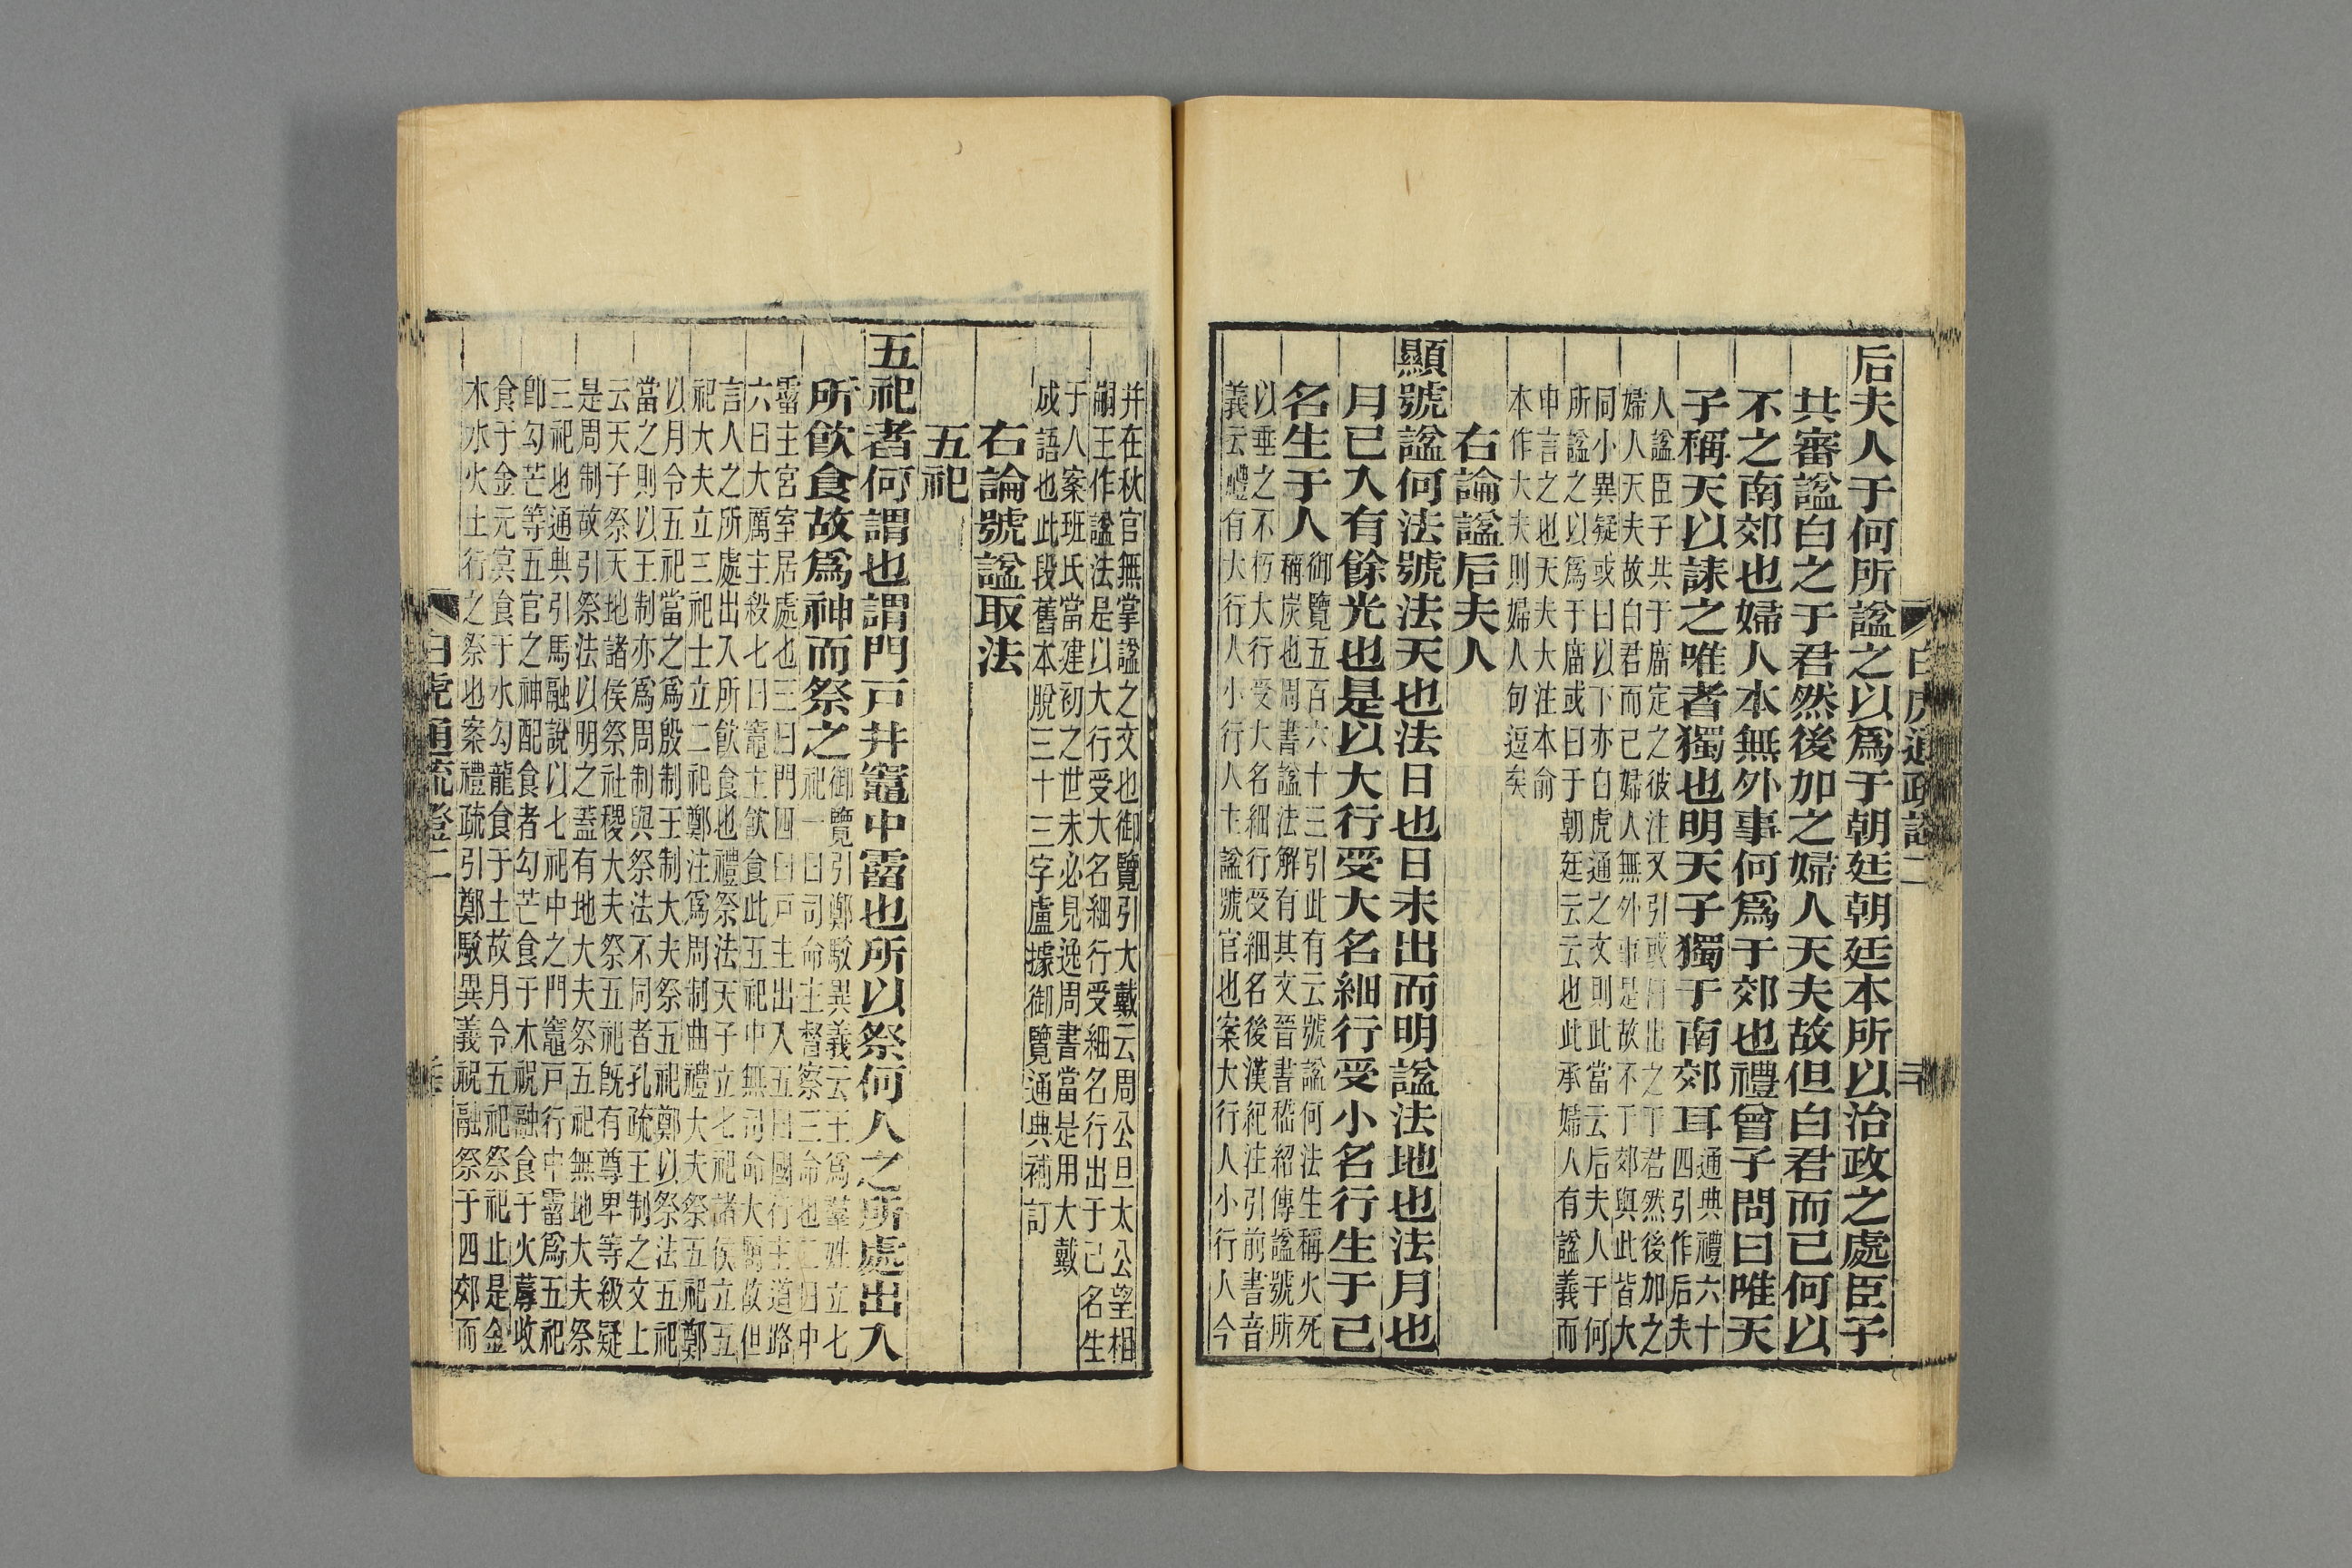 后夫人于何所諡之以爲于朝廷朝廷本所以治政之處臣子
共審諡白之于君然後加之婦人天夫故但白君而已何以
不之南郊也婦人本無外事何爲于郊也禮曾子問曰唯天
子稱天以誄之唯者獨也明天子獨于南郊耳通典禮六十
四引作后夫
人諡臣子共于廟定之彼注又引或曰出之于君然後加之
婦人天夫故白君而已婦人無外事是故不于郊與此皆大
同小異疑或曰以下亦白虎通之文則此當云后夫人于何
所諡之以爲于廟或曰于朝廷云云也此承婦人有諡義而
申言之也天夫大注本俞
本作大夫則婦人句逗矣
右論諡后夫人
顯號諡何法號法天也法日也日未出而明諡法地也法月也
月已入有餘光也是以大行受大名細行受小名行生于己
名生于人御覽五百六十三引此有云號諡何法生稱火死
稱炭也周書諡法解有其文晉書嵇紹傳諡號所
以垂之不朽大行受大名細行受細名後漢紀注引前書音
義云禮有大行人小行人主諡號官也案大行人小行人今
并在秋官無掌諡之文也御覽引大戴云周公旦太公望相
嗣王作諡法是以大行受大名細行受細名行出于己名生
于人案班氏當建初之世未必見逸周書當是用大戴
成語也此段舊本脫三十三字盧據御覽通典補訂
右論號諡取法
五祀
五祀者何謂也謂門戸井竈中霤也所以祭何人之所處出入
所飲食故爲神而祭之御覽引鄭駁異義云王爲羣姓立七
祀一曰司命主督察三命也二曰中
霤主宮室居處也三曰門四曰戸主出入五曰國行主道路
六曰大厲主殺七曰竈主飲食此五祀中無司命大厲故但
言人之所處出入所飲食也禮祭法天子立七祀諸侯立五
祀大夫立三祀士立二祀鄭注爲周制曲禮大夫祭五祀鄭
以月令五祀當之爲殷制王制大夫祭五祀鄭以祭法五祀
當之則以王制亦爲周制與祭法不同者孔疏王制之文上
云天子祭天地諸侯祭社稷大夫祭五祀旣有尊卑等級疑
是周制故引祭法以明之蓋有地大夫祭五祀無地大夫祭
三祀也通典引馬融說以七祀中之門竈戸行中霤爲五祀
卽勾芒等五官之神配食者勾芒食于木祝融食于火蓐收
食于金元冥食于水勾龍食于土故月令五祀祭祀止是金
木水火土行之祭也案禮疏引鄭駁異義祝融祭于四郊而
白虎通疏證二